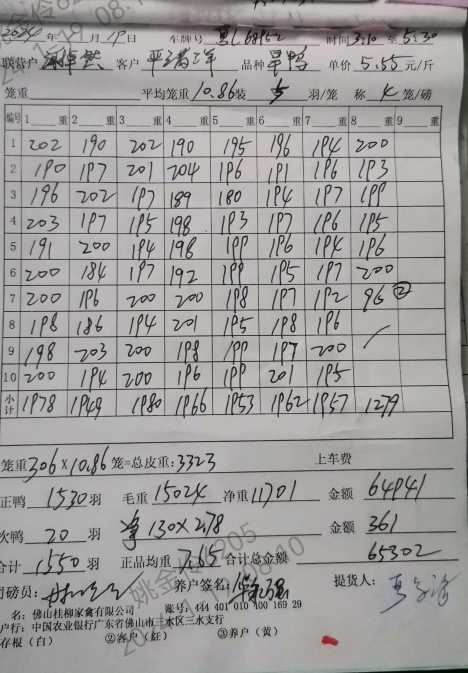 2024年 1月19日 车牌号 68952 时间3:10至5:30
联营户 客户 品种 单价5.55元/斤
笼重 平均笼重10.86装 5 羽/笼 称 4 笼/磅
编号 1 重 2 重 3 重 4 重 5 重 6 重 7 重 8 重 9 重
1 202 190 202 190 195 196 194 200
2 190 197 201 204 196 191 196 193
3 196 202 197 189 180 194 197 199
4 203 197 195 198 193 197 196 195
5 191 200 194 198 199 196 194 196
6 200 184 197 192 199 195 197 200
7 200 196 200 200 198 197 192 96 ②
8 198 186 194 201 195 198 196
9 198 203 200 198 199 197 200
10 200 194 200 196 199 201 195
小计 1978 1949 1980 1966 1953 1962 1957 1279
笼重306×10.86笼=总皮重:3323 上车费
正鸭 1530 羽 毛重 15024 净重11701 金额 64941
次鸭 20 羽 净 130×2.78 金额 361
合计 1550 羽 正品均重 7.65 合计总金额 65302
司磅员: 养户签名: 提货人:
名: 佛山桂柳家禽有限公司 账号: 444 401 010 400 169 29
户行: 中国农业银行广东省佛山市三水区三水支行
存根(白) ②客户(红) ③养户(黄)